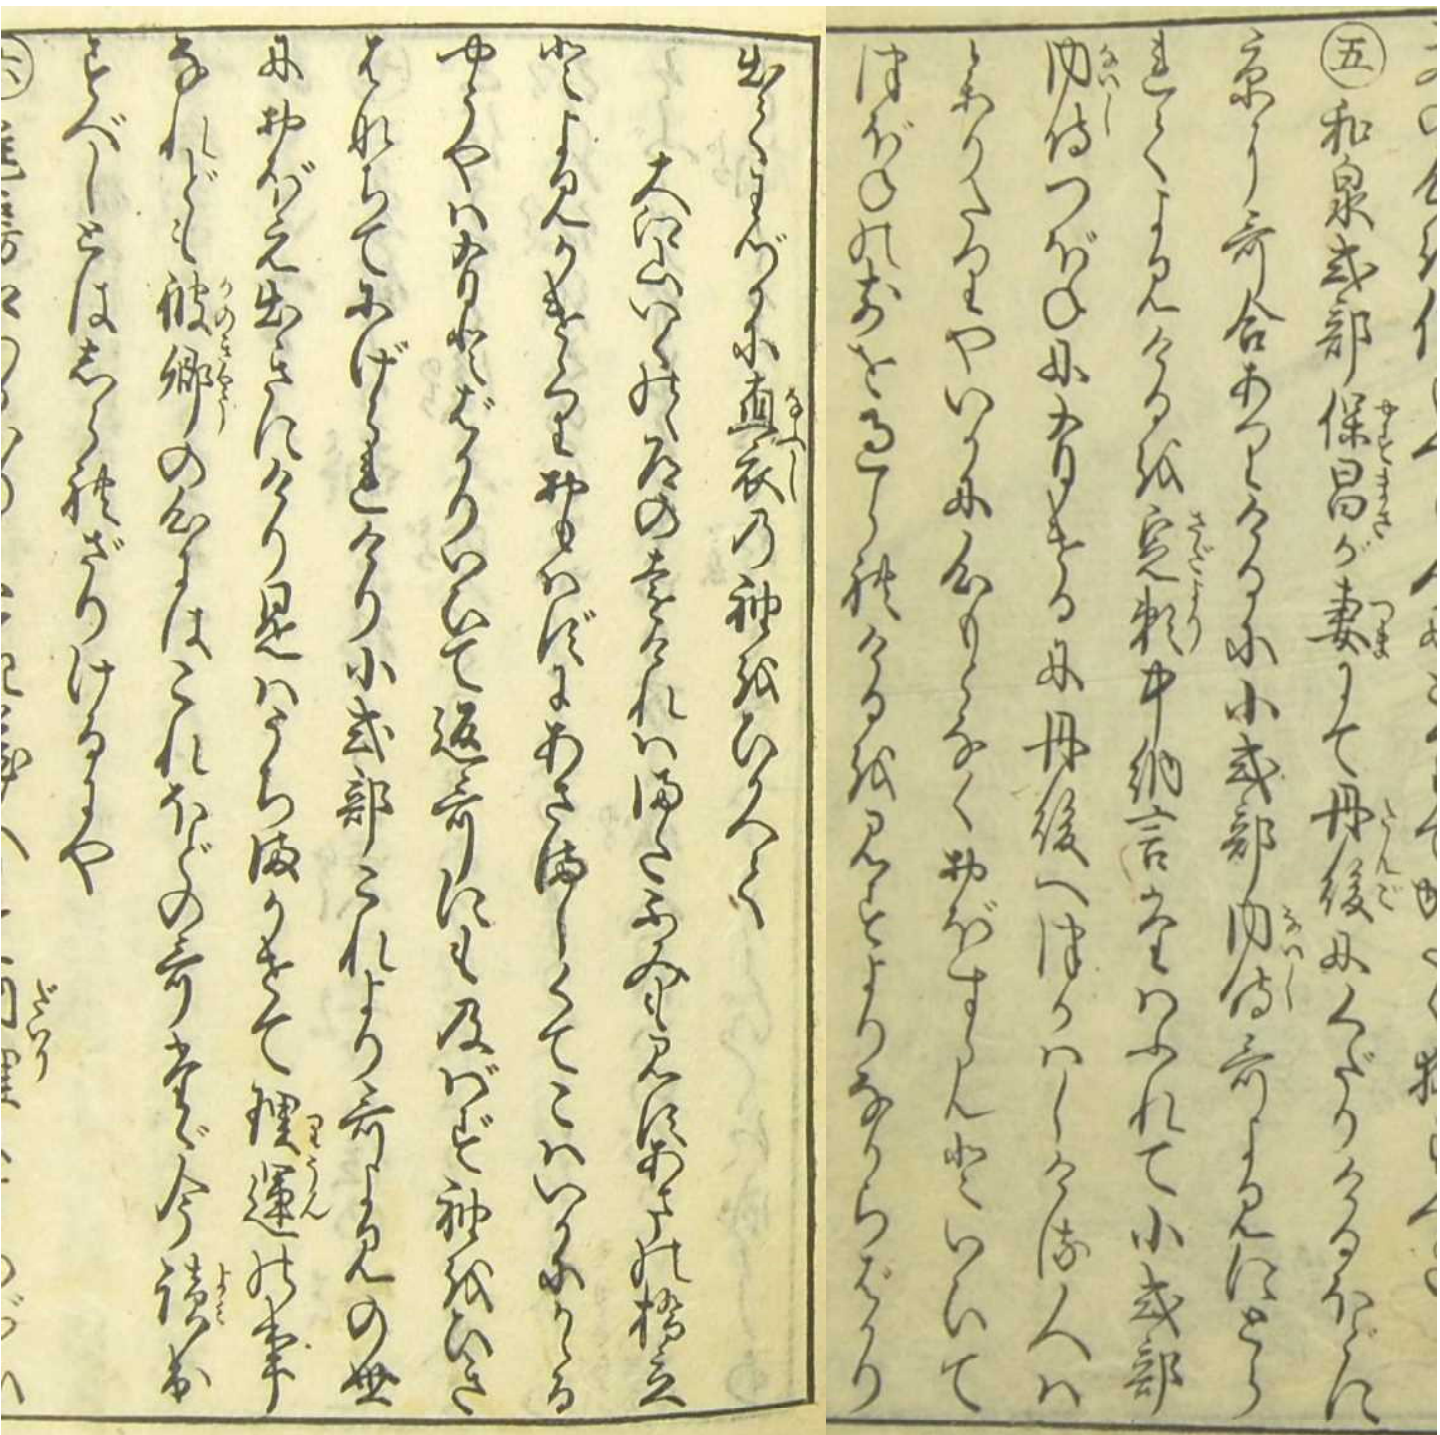 ㊄和泉式部保昌が妻にて丹後にくだりけるほどに
京に哥合ありけるに小式部内侍哥よみにとら
れてよみけるを定頼中納言たはふれて小式部
内侍つぼねに有けるに丹後へつかはしける人は
たりやいかに心もとなくおぼすらんといひて
つぼねのまへを過られけるを見すよりなからばかり
出てわづかに直衣の袖をひかへて
大江山いくのの道の遠ければまたふみも見ずあまの橋立
とよみかけけりおもはずにあさましくてこはいかにかゝる
やうやは有とばかりいひて返哥にも及ばず袖をひき
はなちてにげられけり小式部これより哥よみの世
におぼえ出きにけり是はうちまかせて理運の事
なれども彼卿の心にはこれほどの哥たゞ今読出
すべしとはしられざりけるにや